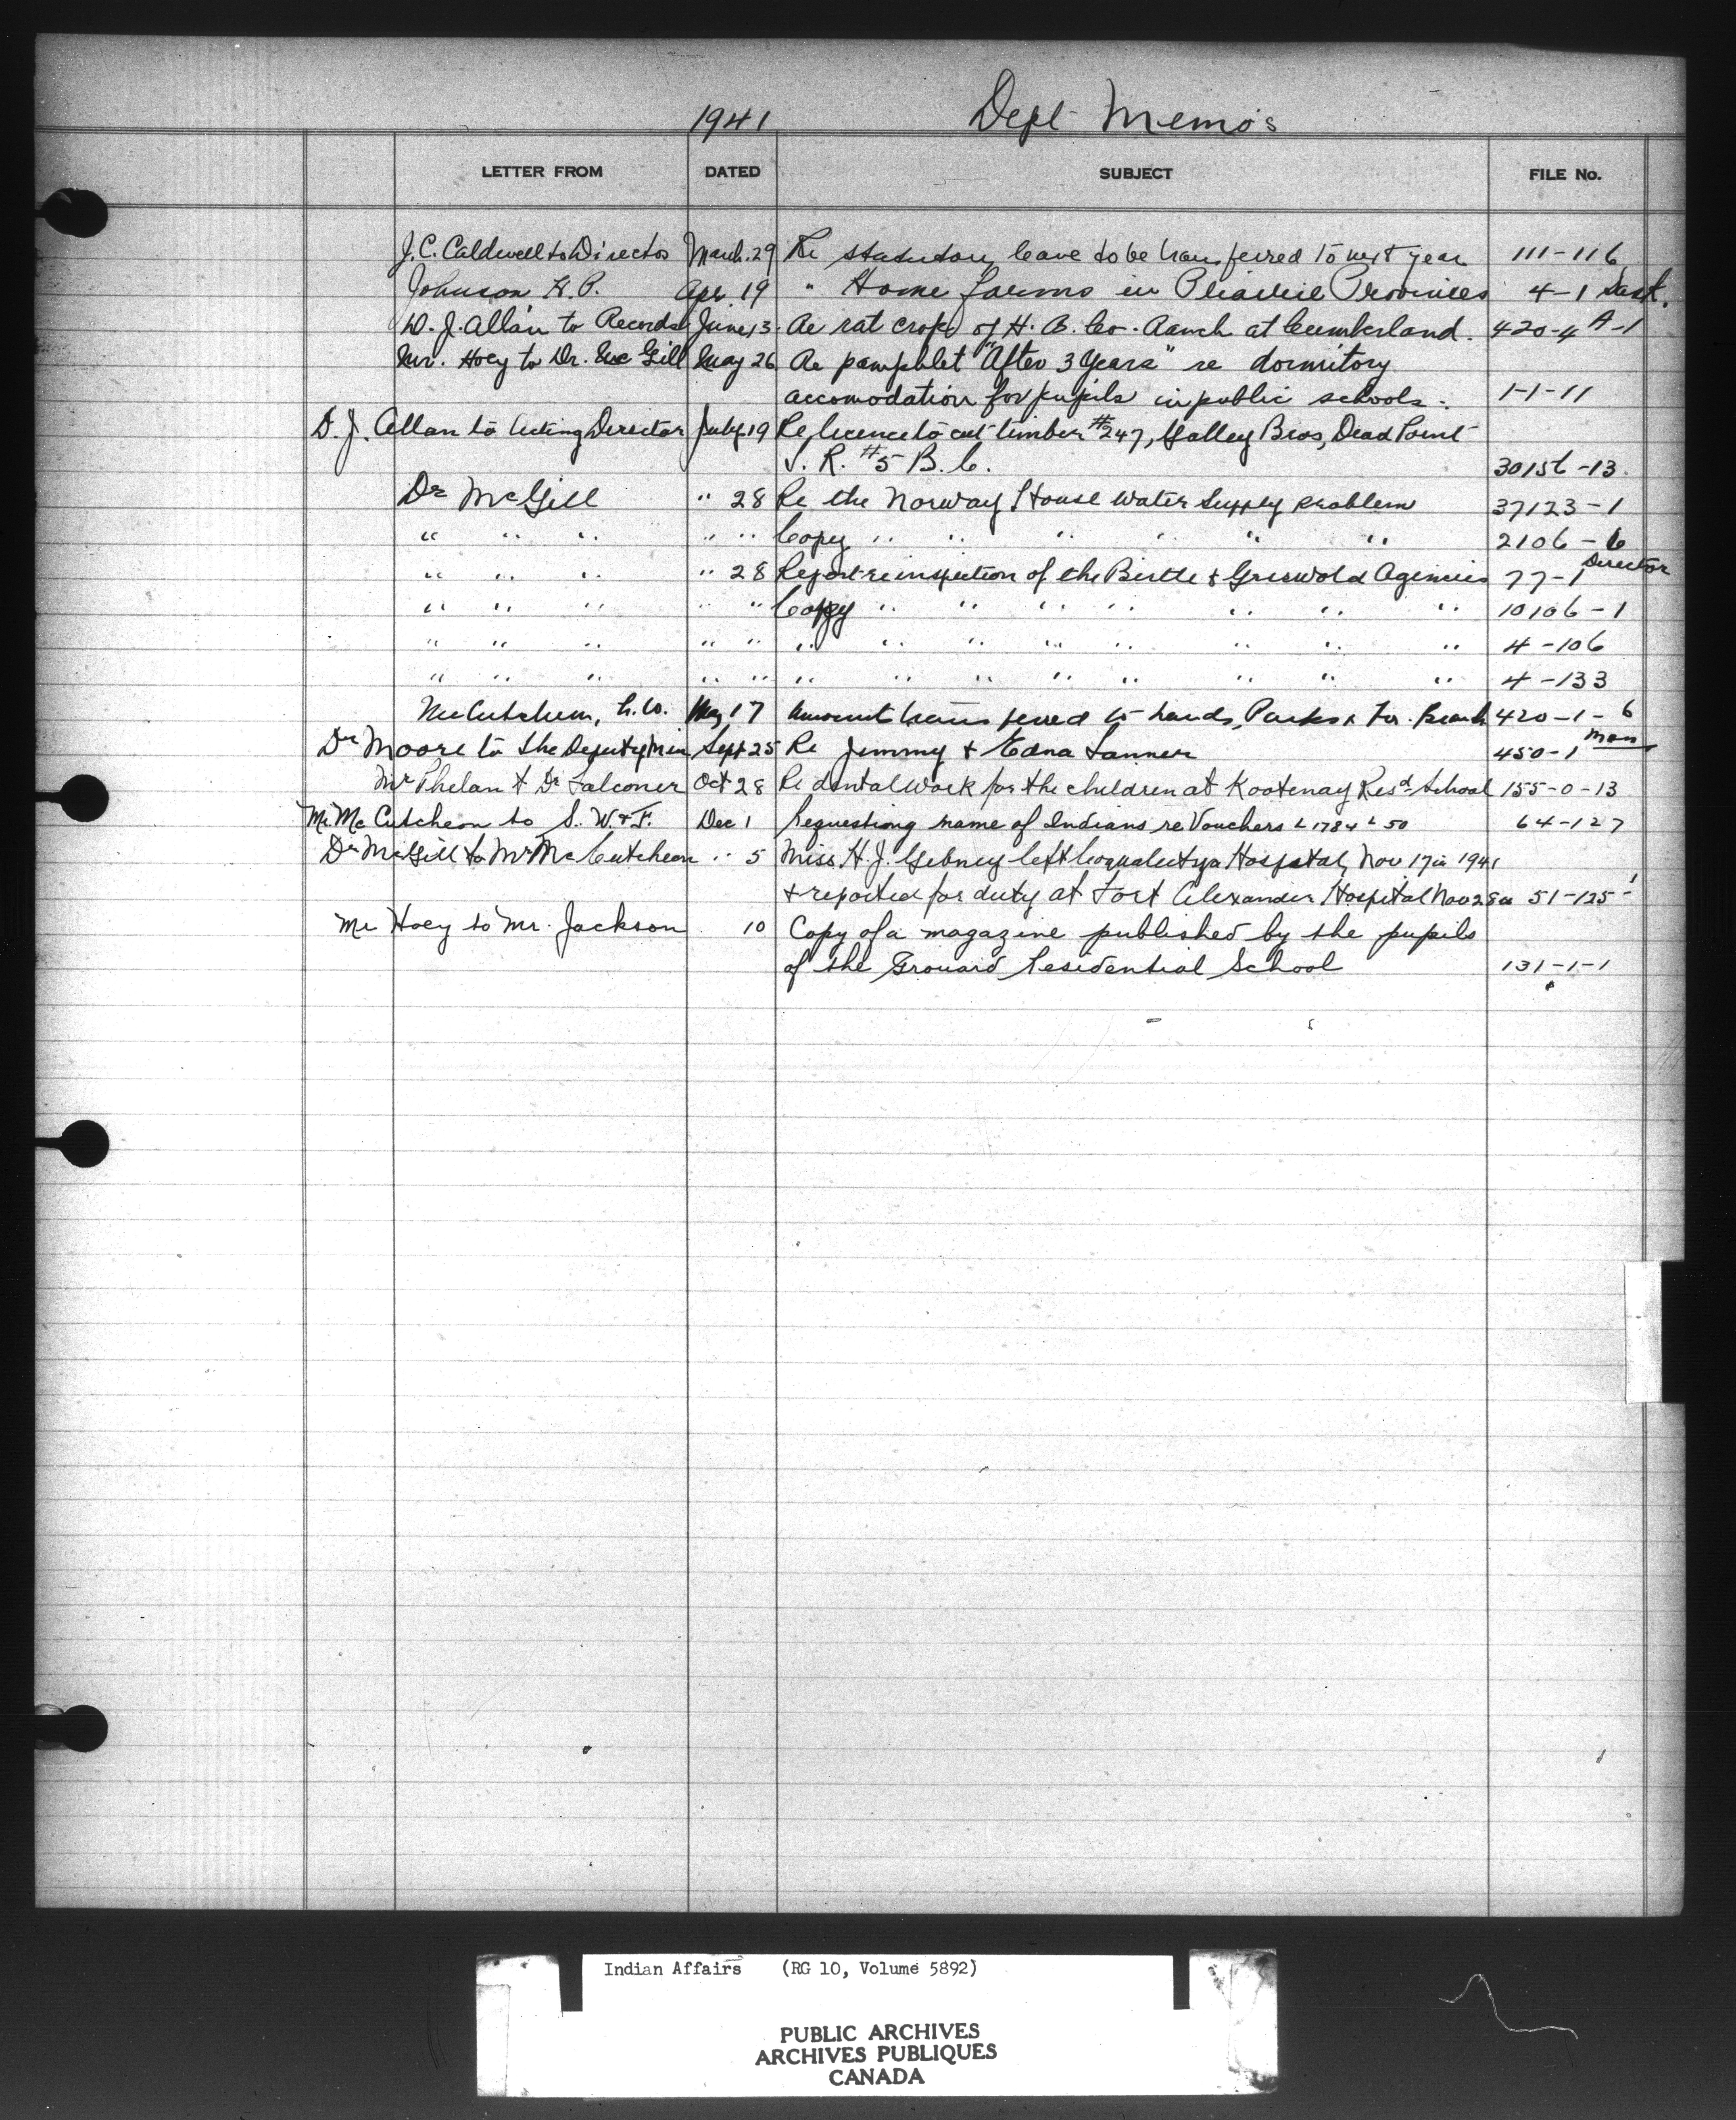 1941 Dept Memo's
LETTER FROM DATED SUBJECT FILE No.
J. C. Caldwell to Director March 29 Re statutory leave to be transferred to next year 111-116
Johnson H. P. Apr. 19 " Home farms in Prairie Provinces 4-1 Sask.
D. J. Allan to Records June 13. Re rat crop of H. B. Co. Ranch at Cumberland. 420-4 A-1
Mr. Hoey to Dr. McGill May 26 Re pamphlet "After 3 Years" re dormitory
accomodation for pupils in public schools. 1-1-11
D. J. Allan to Acting Director July 19 Re licence to cut timber #247, Galley Bros, Dead Point
I. R. #5 B. C. 30156-13.
Dr McGill " 28 Re the Norway House water supply problem 37123-1
" " " " " Copy " " " " " " 2106-6
" " " " 28 Report re inspection of the Birtle & Griswold Agencies 77-1 Director
" " " " " Copy " " " " " " " 10106-1
" " " " " " " " " " " " " 4-106
" " " " " " " " " " " " " 4-133
McCutcheon, May 17 Amount transferred to Lands, Parks & For. Branch 420-1-6
Dr Moore to the Deputy Min Sept 25 Re Jimmy & Edna Tanner 450-1 Man
Mr Phelan to Dr Falconer Oct 28 Re dental work for the children at Kootenay Resd. School 155-0-13
Mr. McCutcheon to S. W. & F. Dec 1 Requesting name of Indians re Vouchers L 1784 L 50 64-127
Dr McGill to Mr McCutcheon " 5 Miss H. J. Gibney left Coqualeetza Hospital, Nov 17th 1941
& reported for duty at Fort Alexander Hospital Nov 28th 51-125-1
Mr Hoey to Mr. Jackson 10 Copy of a magazine published by the pupils
of the Grouard Residential School 131-1-1
Indian Affairs (RG 10, Volume 5892)
PUBLIC ARCHIVES
ARCHIVES PUBLIQUES
CANADA